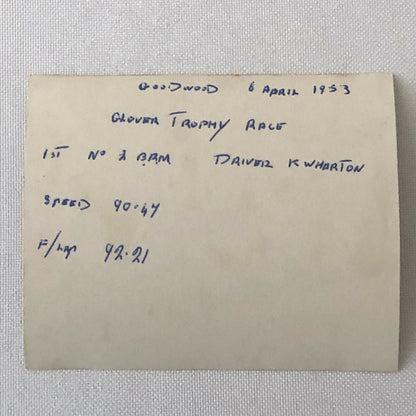 GOODWOOD 6 APRIL 1953
GLOVER TROPHY RACE
1ST No 2 BRM DRIVER K WHARTON
SPEED 90.47
F/LAP 92.21